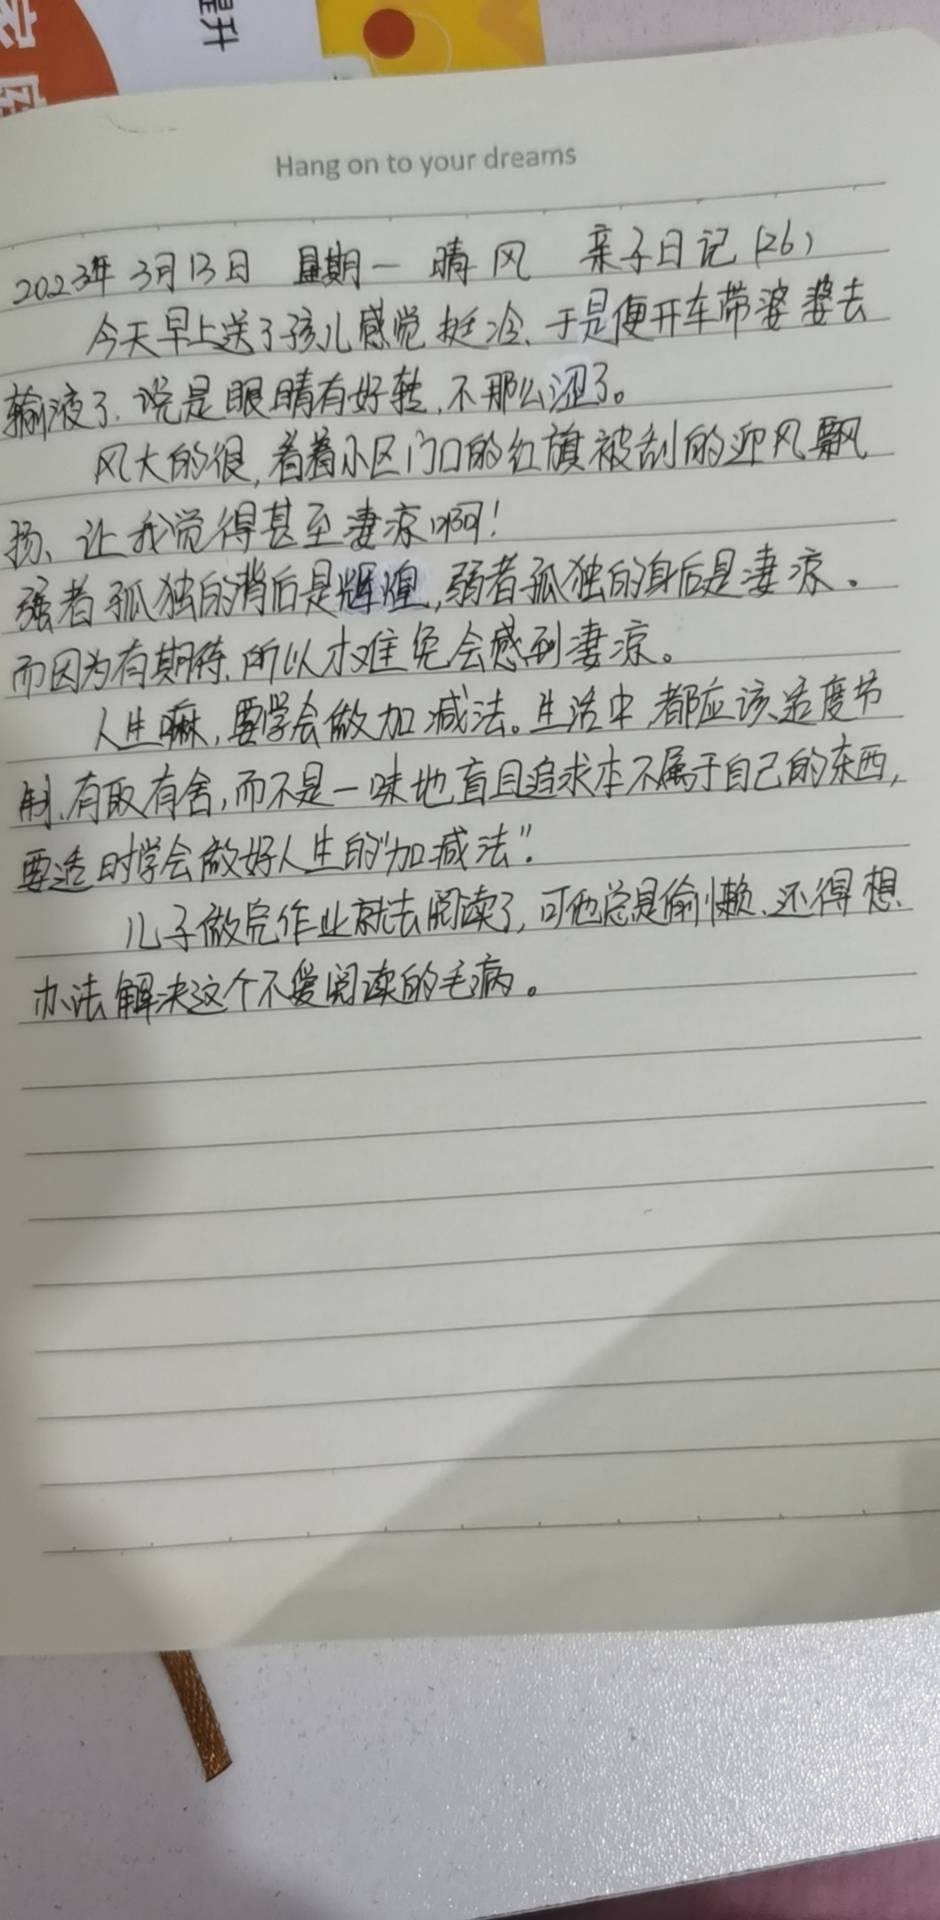 提升
Hang on to your dreams
2023年 3月13日 星期一 晴 风 亲子日记(26)
今天早上送了孩儿感觉挺冷、于是便开车带婆婆去
输液了.说是眼睛有好转,不那么涩了。
风大的很,看着小区门口的红旗被刮的迎风飘
扬、让我觉得甚至凄凉啊!
强者孤独的背后是辉煌,弱者孤独的身后是凄凉.
而因为有期待,所以才难免会感到凄凉。
人生嘛,要学会做加减法。生活中都应该适度节
制、有取有舍,而不是一味地盲目追求本不属于自己的东西,
要适时学会做好人生的“加减法”.
儿子做完作业就去阅读了,可他总是偷懒、还得想
办法解决这个不爱阅读的毛病。